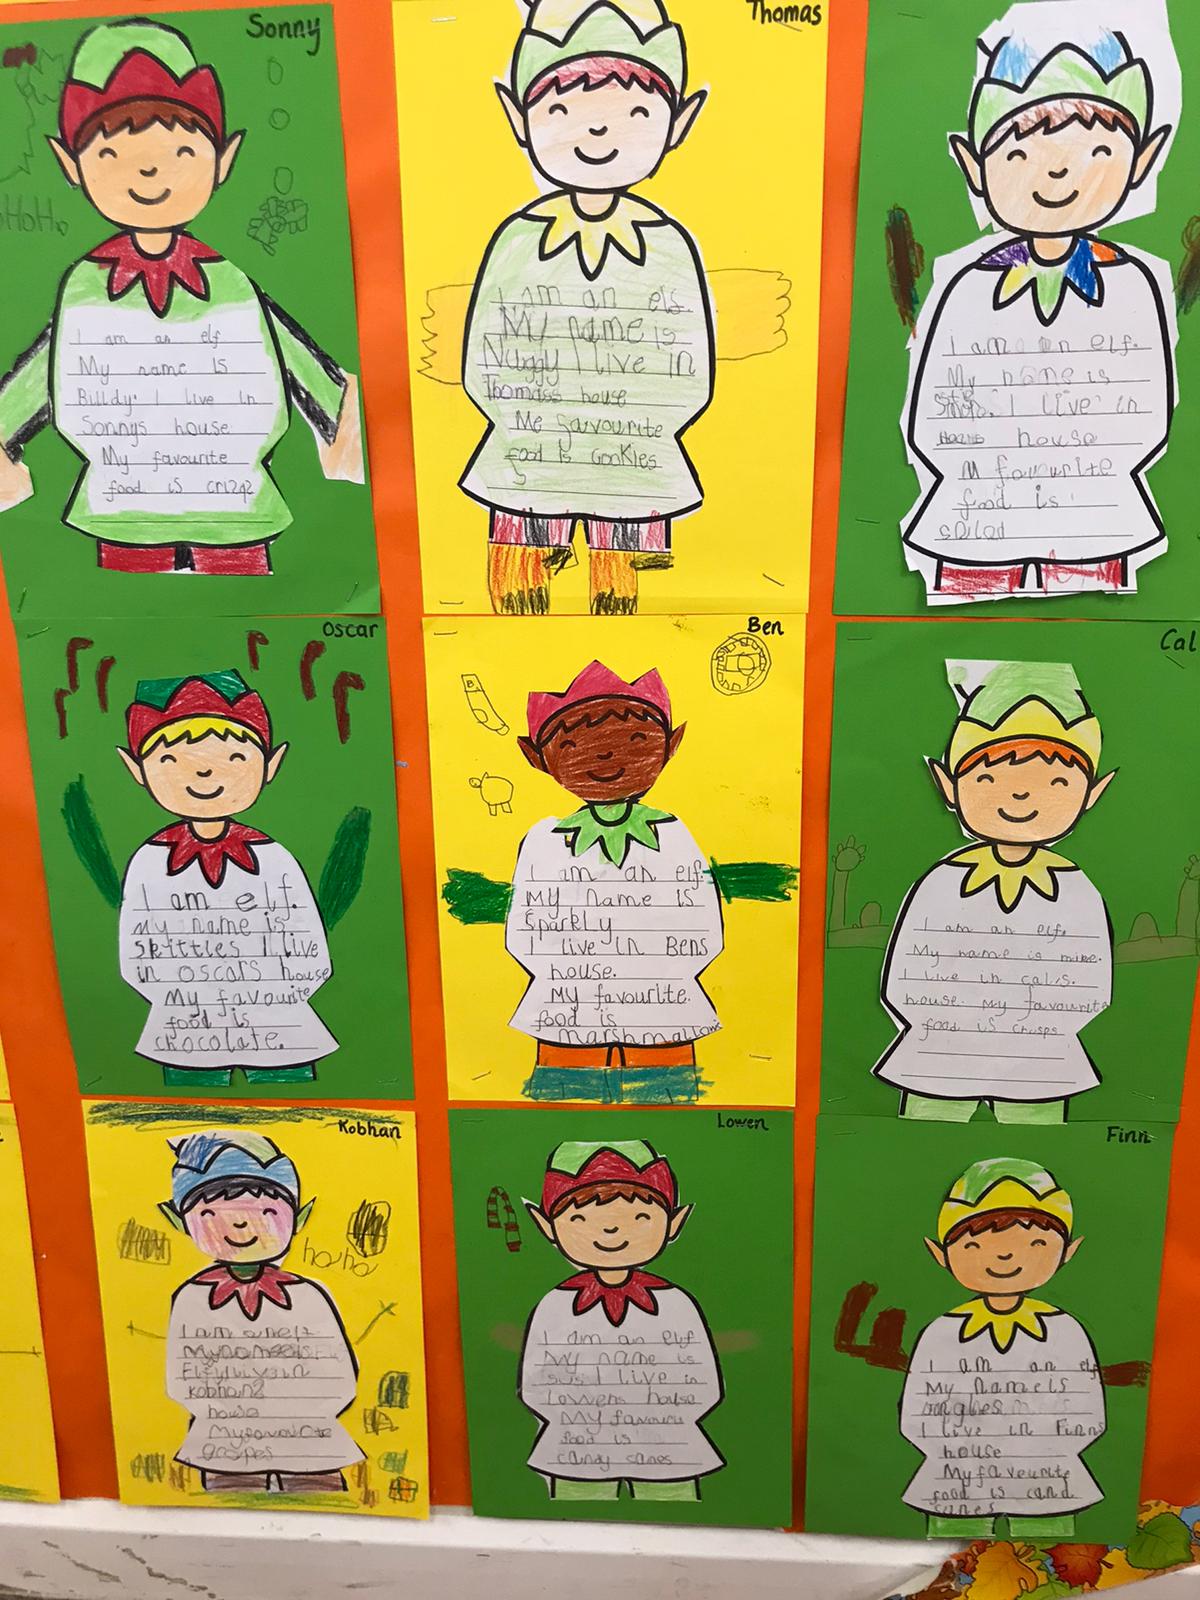 Sonny
HoHo
I am an elf
My name is
Billdy. I live in
Sonnys house
My favourite
food is
Thomas
I am an elf.
My name is
Nuggy I live in
Thomass house
Me favourite
food is Cookies
I am an elf.
My name is
I live in
house
M favourite
food is
salad
Oscar
I am elf.
my name is
skittles I live
in oscars house
My favourite
food is
chocolate.
Ben
I am an elf.
My name is
Sparkly
I live in Bens
house.
My favourite.
food is
marshmallows
Cal
I am an elf.
My name is mike.
I live in cal.s.
house. My favourite
food is crisps
Kobhan
hoho
I am an elf
Kobhans
house
My favourite
Lowen
I am an elf
My name is
I live in
Lowens house
My favouri
food is
candy canes
Finn
I am an elf
My name is
I live in Finns
house
My faveurite
food is cand
canes